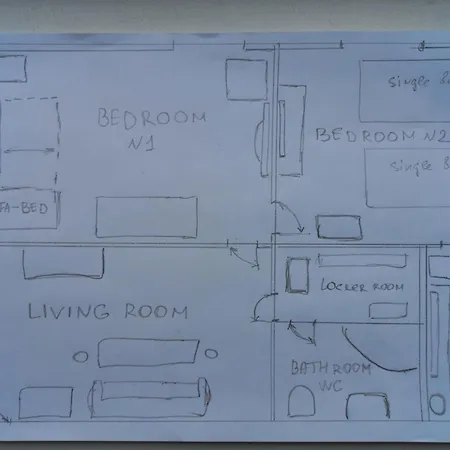 BEDROOM
N1
Single
BEDROOM N2
Single
FA-BED
LIVING ROOM
LOCKER ROOM
BATHROOM
WC